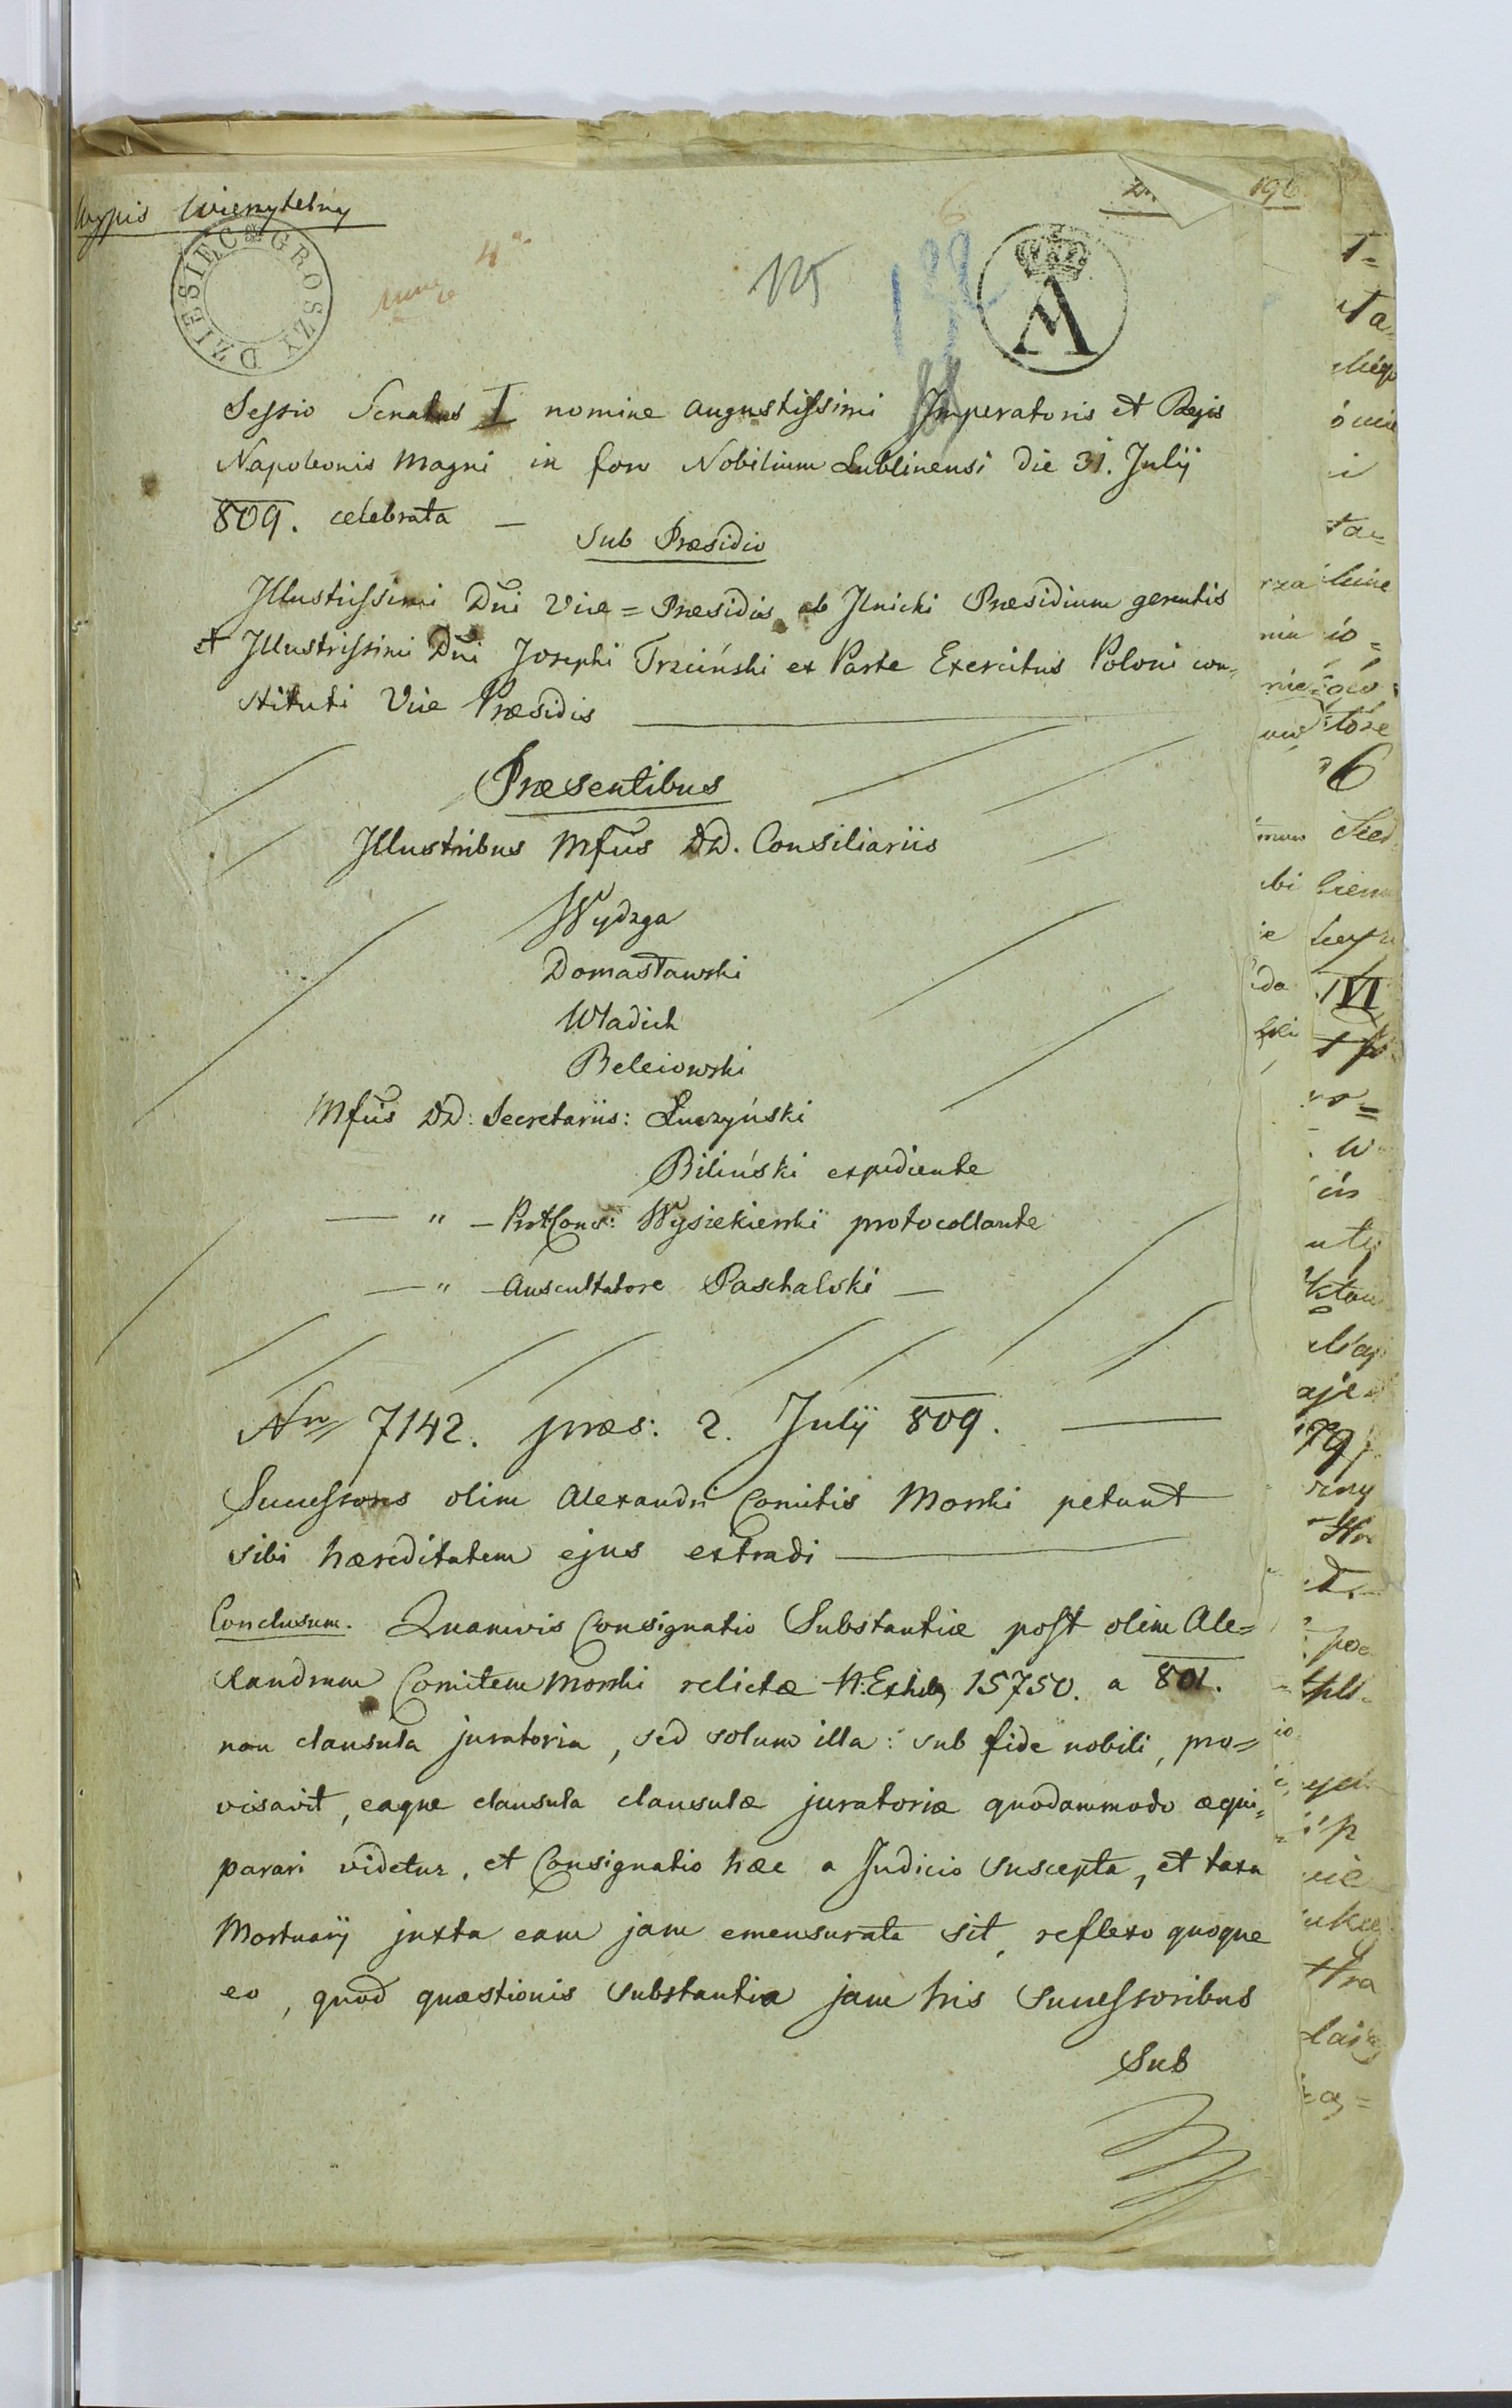 Wypis Wierzytelny
196
DZIESIĘC GROSZY
125
Sessio Senatus I nomine Augustissimi Imperatoris et Regis
Napoleonis Magni in foro Nobilium Lublinensi die 31. Julÿ
809. celebrata —
Sub Præsidio
Illustrissimi Dni Vice = Præsidis ab Ilnicki Præsidium gerentis
et Illustrissimi Dni Josephi Trzciński ex Parte Exercitus Poloni con=
stituti Vice Præsidis
Præsentibus
Illustribus Mfcis DD. Consiliariis
Wydzga
Domasławski
Władich
Beleiowski
Mfcis DD: Secretariis: Łuczyński
Biliński expediente
— " — Wysiekierski protocollante
— " — Auscultatore Paschalski —
Nro 7142. præs: 2. Julÿ 809.
Successores olim Alexandri Comitis Morski petunt
sibi hæreditatem ejus extradi
Conclusum. Quamvis Consignatio Substantiæ post olim Ale=
xandrum Comitem Morski relictæ 15750. a 801.
non clausula juratoria, sed solum illa: sub fide nobili, pro=
visavit, eaque clausula clausulæ juratoriæ quodammodo æqui=
parari videtur, et Consignatio hæc a Judicio suscepta, et taxa
Mortuarÿ juxta eam jam emensurata sit, reflexo quoque
eo, quod quæstionis substantia jam his Successoribus
Sub